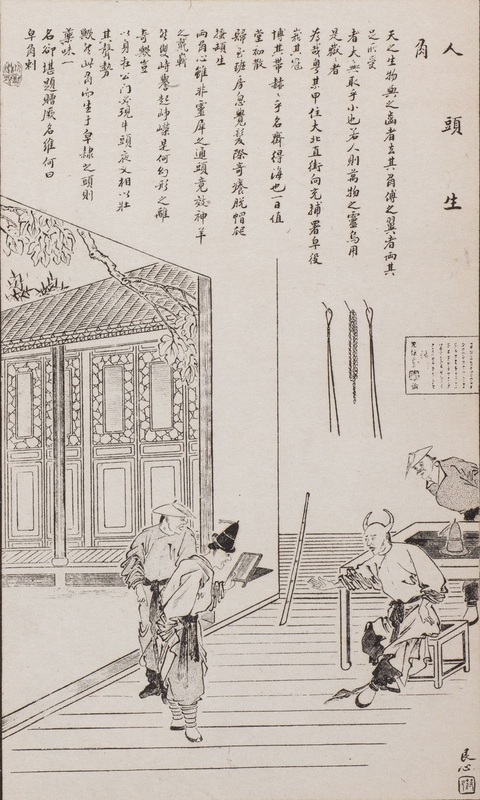 人頭生
角
天之生物與之齒者去其角傅之翼者兩其
足所受
者大無取乎小也若人則萬物之靈烏用
是戴者
為哉粵某甲住大北直街向充捕署皁役
峩其冠
博其帶赫赫乎名
也一日值
堂初散
歸至班房忽覺髮際奇癢脫帽爬
搔頓生
兩角心雖非靈犀之通頭竟效神羊
之戴嶄
然雙峙
起崢嶸是何幻形之離
奇歟豈
以身在公門必現牛頭夜叉相以壯
其聲勢
歟然此角而生于皁隸之頭則
藥味一
名卻堪題贈厥名維何曰
皁角刺
良心